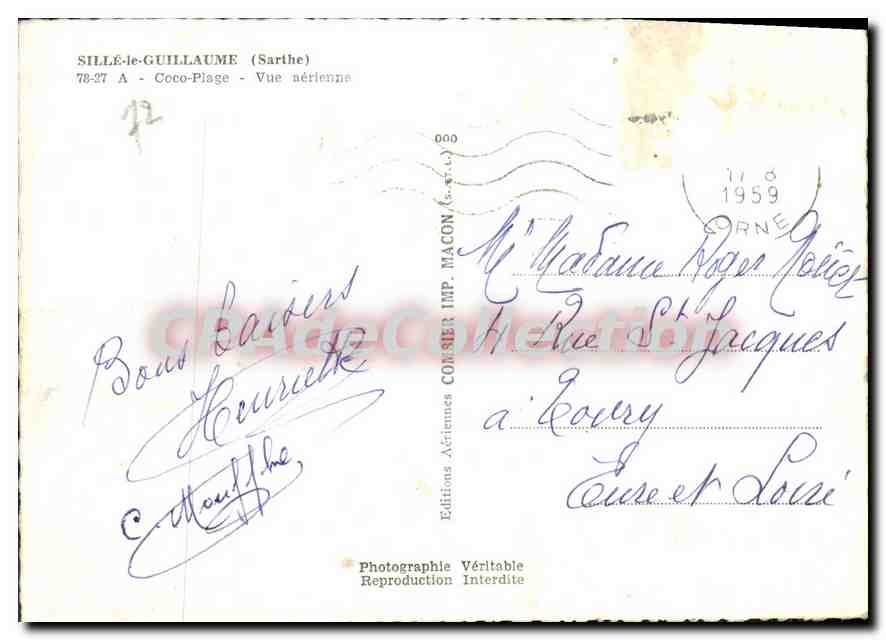 SILLÉ-le-GUILLAUME (Sarthe)
78-27 A - Coco-Plage - Vue aérienne
72
000
17 8
1959
ORNE
Editions Aériennes COMBIER IMP. MACON (S.A.R.L.)
Bons baisers
Henriette
C. Mouffle
Mr Madame Roger
4 Rue St Jacques
à Toury
Eure et Loire
CPAdeCollection
Photographie Véritable
Reproduction Interdite